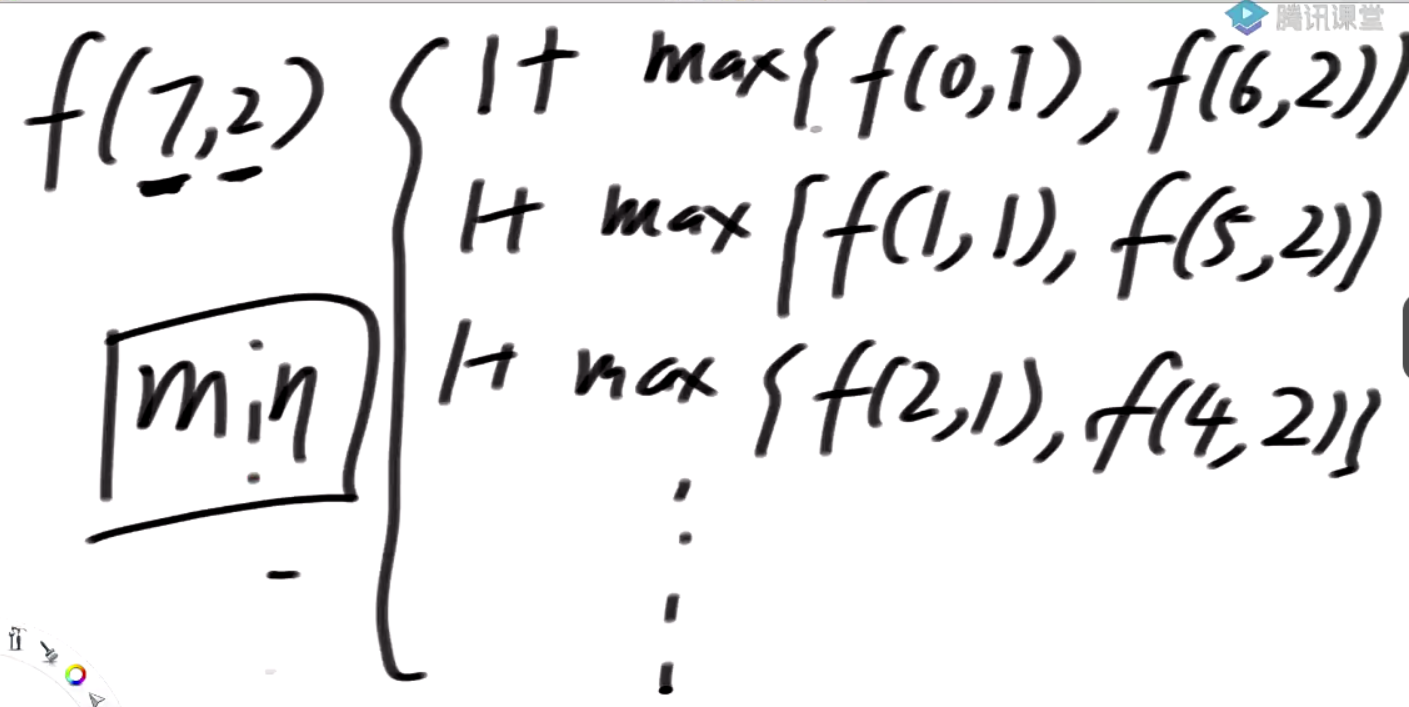 腾讯课堂
f(7,2) { 1+ max{ f(0,1), f(6,2)}
1+ max {f(1,1), f(5,2)}
1+ max {f(2,1), f(4,2)}
min